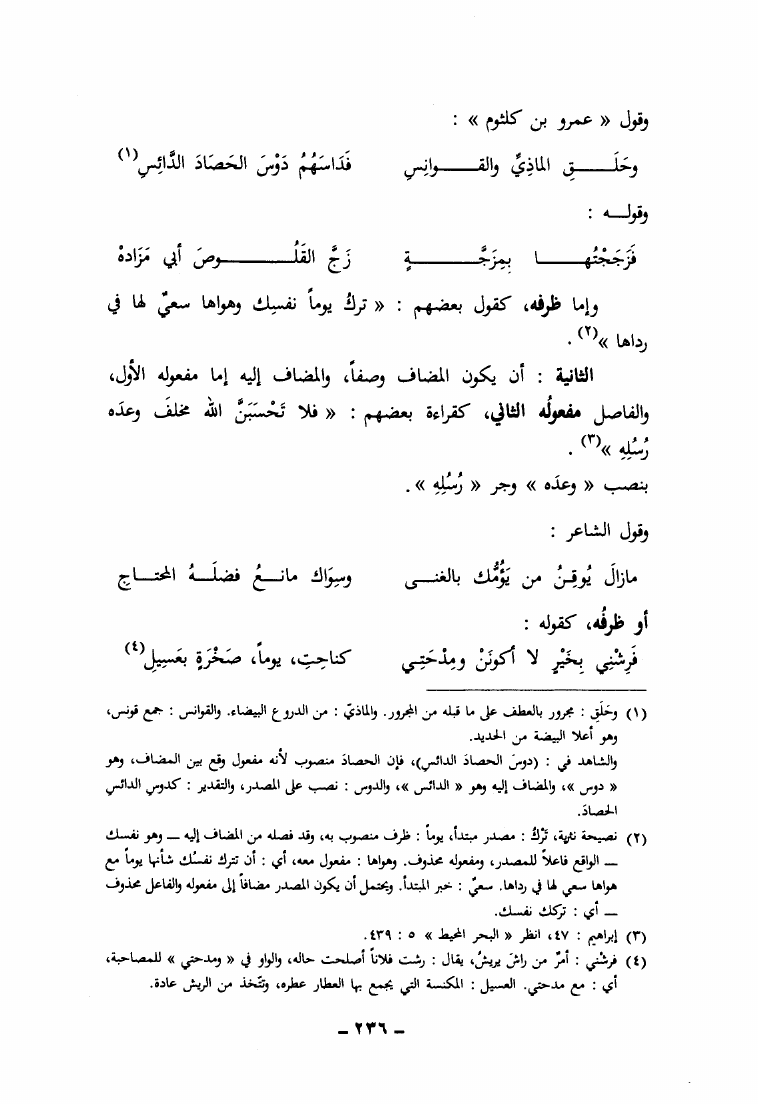 وقول « عمرو بن كلثوم » :
وحَلَـــقِ الماذِيِّ والقـــوانِسِ فَدَاسَهُمُ دَوْسَ الحَصَادَ الدَّائِسِ(١)
وقولـــه :
فَزَجَجْتُهـــا بِمِزَجَّـــةٍ زَجَّ القَلُـــوصَ أبي مَزَادهْ
وإما ظرفه، كقول بعضهم : « تركُ يوماً نفسِك وهواها سعيٌ لها في
رداها »(٢) .
الثانية : أن يكون المضاف وصفاً، والمضاف إليه إما مفعوله الأول،
والفاصل مفعولُه الثاني، كقراءة بعضهم : « فلا تَحْسَبَنَّ الله مخلفَ وعدَه
رُسُلِهِ »(٣) .
بنصب « وعدَه » وجر « رُسُلِهِ ».
وقول الشاعر :
مازالَ يُوقِـنُ من يَؤُمُّك بالغنـــى وسِوَاك مانـــعُ فضلَـــهُ المحتـــاجِ
أو ظرفُه، كقوله :
فَرِشْنِي بِخَيْرٍ لا أكونَنْ ومِدْحَتِـي كناحِتِ، يوماً، صَخْرَةٍ بعَسِيلِ(٤)
(١) وحَلَقِ : مجرور بالعطف على ما قبله من المجرور. والماذيّ : من الدروع البيضاء. والقوانس : جمع قونس،
وهو أعلا البيضة من الحديد.
والشاهد في : (دوسَ الحصادَ الدائسِ)، فإن الحصادَ منصوب لأنه مفعول وقع بين المضاف، وهو
« دوس »، والمضاف إليه وهو « الدائس »، والدوس : نصب على المصدر، والتقدير : كدوسِ الدائسِ
الحصادَ.
(٢) نصيحة نثرية، تَرْكُ : مصدر مبتدأ، يوماً : ظرف منصوب به، وقد فصله من المضاف إليه — وهو نفسك
— الواقع فاعلاً للمصدر، ومفعوله محذوف. وهواها : مفعول معه، أي : أن تترك نفسُك شأنها يوماً مع
هواها سعي لها في رداها. سعيٌ : خبر المبتدأ. ويحتمل أن يكون المصدر مضافاً إلى مفعوله والفاعل محذوف
— أي : تركك نفسك.
(٣) إبراهيم : ٤٧، انظر « البحر المحيط » ٥ : ٤٣٩.
(٤) فرشني : أمرٌ من راشَ يريشُ، يقال : رشت فلاناً أصلحت حاله، والواو في « ومدحتي » للمصاحبة،
أي : مع مدحتي. العسيل : المكنسة التي يجمع بها العطار عطره، وتتّخذ من الريش عادة.
– ٢٣٦ –